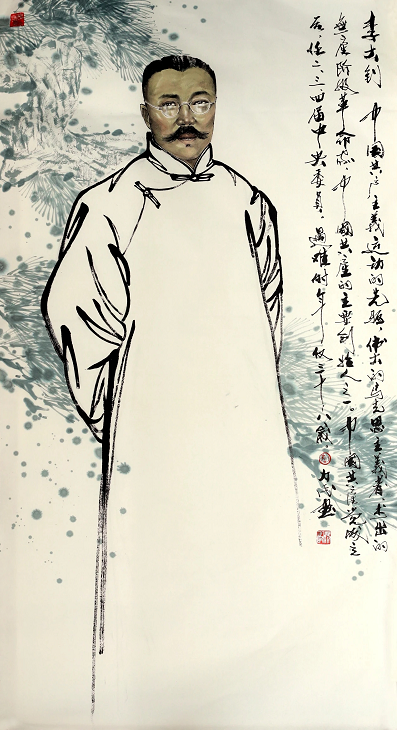 李大钊 中國共产主義运动的先驱，偉大的马克思主义者，杰出的
無產阶级革命家，中國共產的主要創始人之一。中國共產党成立
后，任二、三、四届中央委員，遇难时年仅三十八歲